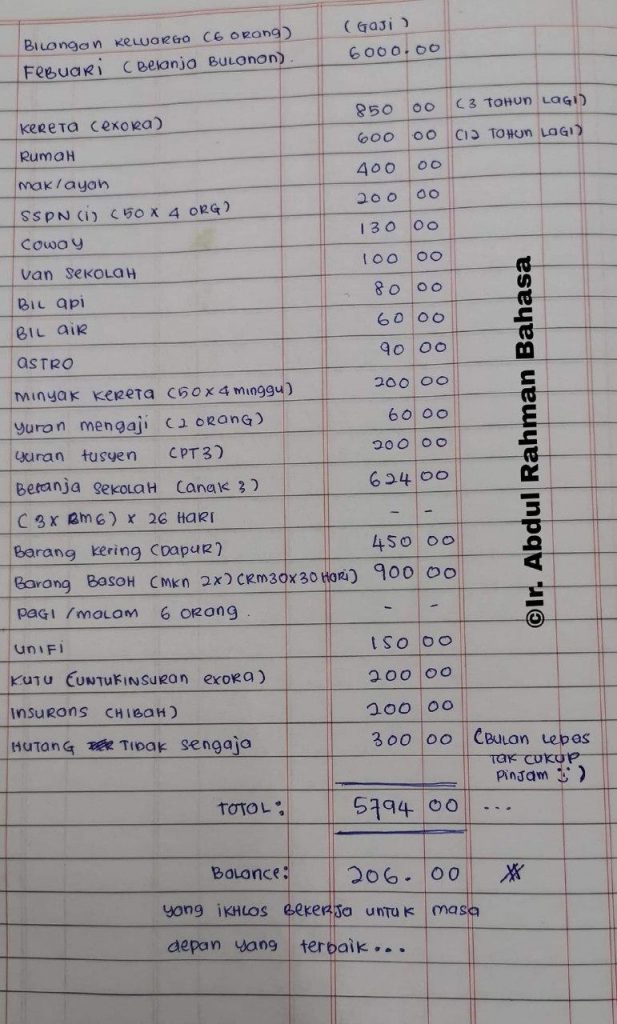 Bilangan keluarga (6 orang) (Gaji)
Febuari (Belanja Bulanan). 6000.00
Kereta (exora) 850 00 (3 Tahun lagi)
Rumah 600 00 (12 Tahun lagi)
mak/ayah 400 00
SSPN (i) (50 x 4 ORG) 200 00
Coway 130 00
Van sekolah 100 00
Bil api 80 00
Bil air 60 00
ASTRO 90 00
minyak kereta (50x4 minggu) 200 00
yuran mengaji (2 orang) 60 00
yuran tusyen (PT3) 200 00
Belanja sekolah (anak 3) 624 00
(3x RM6) x 26 Hari - -
Barang kering (Dapur) 450 00
Barang Basah (mkn 2x) (RM30x30 Hari) 900 00
pagi /malam 6 orang. - -
unifi 150 00
kutu (untuk insuran exora) 200 00
insurans (Hibah) 200 00
Hutang Tidak sengaja 300 00 (Bulan lepas
tak cukup
pinjam )
TOTAL: 5794 00 ...
Balance: 206. 00
yang ikhlas bekerja untuk masa
depan yang terbaik...
©Ir. Abdul Rahman Bahasa